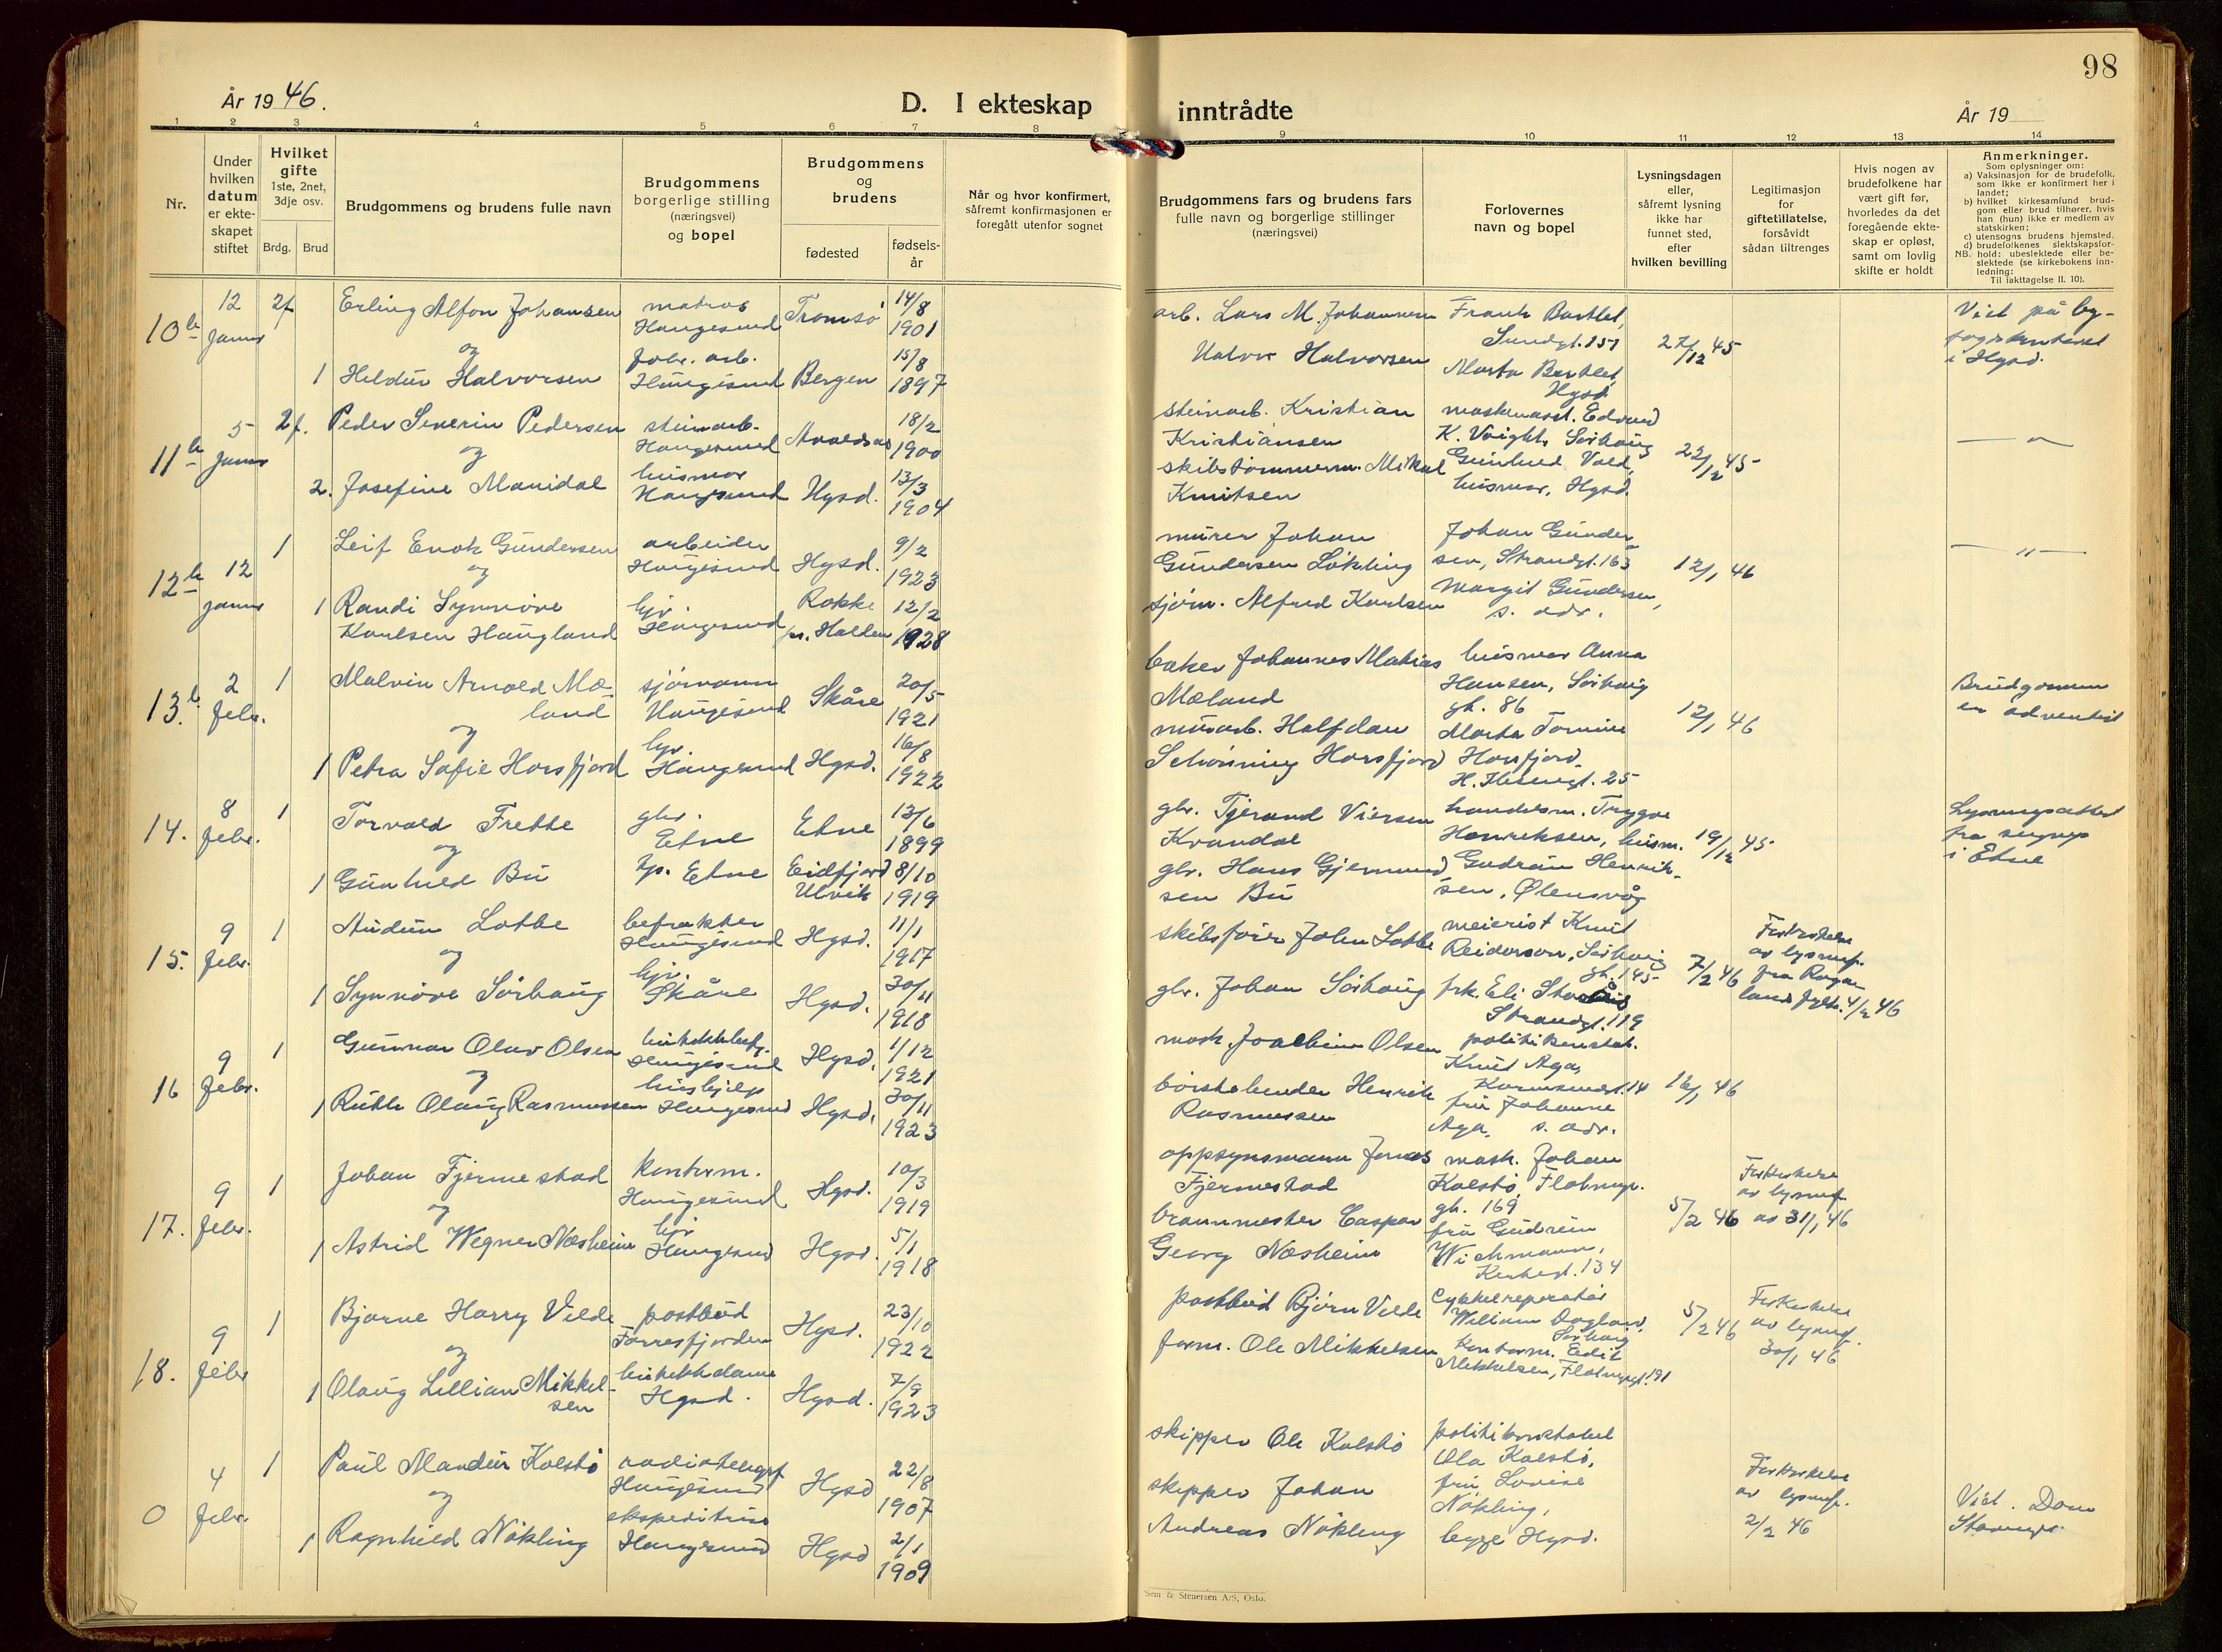 98
År 1946.
D. I ekteskap inntrådte
År 19
1 2 3 4 5 6 7 8 9 10 11 12 13 14
Nr.
Under hvilken datum er ekte- skapet stiftet
Hvilket gifte 1ste, 2net, 3dje osv.
Brdg. Brud
Brudgommens og brudens fulle navn
Brudgommens borgerlige stilling (næringsvei) og bopel
Brudgommens og brudens
fødested
fødsels- år
Når og hvor konfirmert, såfremt konfirmasjonen er foregått utenfor sognet
Brudgommens fars og brudens fars fulle navn og borgerlige stillinger (næringsvei)
Forlovernes navn og bopel
Lysningsdagen eller, såfremt lysning ikke har funnet sted, efter hvilken bevilling
Legitimasjon for giftetillatelse, forsåvidt sådan tiltrenges
Hvis nogen av brudefolkene har vært gift før, hvorledes da det foregående ekte- skap er opløst, samt om lovlig skifte er holdt
Anmerkninger.
Som oplysninger om:
a) Vaksinasjon for de brudefolk, som ikke er konfirmert her i landet;
b) hvilket kirkesamfund brud- gom eller brud tilhører, hvis han (hun) ikke er medlem av statskirken;
c) utensogns brudens hjemsted.
d) brudefolkenes slektskapsfor- hold: ubeslektede eller be- slektede (se kirkebokens inn- ledning:
NB. Til iakttagelse II. 10).
10b 12 Januar 2f Erling Alfon Johansen matros Haugesund Tromsø 14/8 1901
og
1 Heldur Halvorsen fabr. arb. Haugesund Bergen 15/8 1897
arb. Lars M. Johannesen
Halvor Halvorsen
Frank Barthel, Sundgt. 151
Marta Barthel, Hgsd.
27/12 45
Viet på by-
i Hgsd.
11b 5 Januar 2f. Peder Severin Pedersen steinarb. Haugesund 18/2 1900
og
2. Josefine Manidal husmor Haugesund Hgsd. 13/3 1904
steinarb. Kristian Kristiansen
skibstømmerm. Mikal Knutsen
K. Voight, Sørhaug
Gunhild Vold, husmor, Hgsd.
22/12 45
— " —
12b 12 Januar 1 Leif Enok Gundersen arbeider Haugesund Hgsd. 9/2 1923
og
1 Randi Synnøve Karlsen Haugland hjv. Haugesund Rokke pr. Halden 12/2 1928
murer Johan Gundersen Løkling
sjøm. Alfred Karlsen
Johan Gunder- sen, Strandgt. 163
Margit Gundersen, s. adr.
12/1 46
— " —
13.b 2 febr. 1 Malvin Arnold Mæ- land sjømann Haugesund Skåre 20/5 1921
og
1 Petra Sofie Horsfjord hjv. Haugesund Hgsd. 16/8 1922
baker Johannes Matias Mæland
murarb. Halfdan Schønning Horsfjord
husmor Anna Hansen, Sørhaug gt. 86
Marta Tomine Horsfjord
25
12/1 46
Brudgommen er adventist
14. 8 febr. 1 Torvald Frette gbr. Etne Etne 13/6 1899
og
1 Gunhild Bu hp. Etne Eidfjord Ulvik 8/10 1919
gbr. Tjerand Viersen Kvandal
gbr. Hans Gjermund- sen Bu
handelsm. Trygve Henriksen, husm. Gudrun Henrik- sen, Ølensvåg
19/12 45
Lysningsattest fra sognepr. i Etne
15. 9 febr. 1 Audun Lothe befrakter Haugesund Hgsd. 11/1 1917
og
1 Synnøve Sørhaug hjv. Skåre Hgsd. 30/11 1918
skibsfører John Lothe
gbr. Johan Sørhaug
meierist Knut Reiderson, Sørhaug gt. 145
frk. Eli
Strandgt. 119
7/2 46
Forkortelse av lysn.f. fra Roga- land fylke. 4/2 46
16 9 febr. 1 Gunnar Olav Olsen butikkbetj. Haugesund Hgsd. 1/12 1921
og
1 Ruth Olaug Rasmussen hushjelp Haugesund Hgsd. 30/11 1923
mask. Joachim Olsen
børstebinder Henrik Rasmussen
politikonstab. Knut Aga, Karmsundgt. 14
fru Johanne Aga, s. adr.
12/1 46
17. 9 febr. 1 Johan Fjermestad kontorm. Haugesund Hgsd. 10/3 1919
og
1 Astrid Wegner Næsheim hjv Haugesund Hgsd. 5/1 1918
oppsynsmann Jonas Fjermestad
brannmester Caspar Georg Næsheim
mask. Johan Kolstø, Flotmyr- gt. 169
fru Gudrun Wichmann, Kirkegt. 134
5/2 46
Forkortelse av lysn.f. av 31/1 46
18. 9 febr 1 Bjarne Harry Velde postbud Førresfjorden Hgsd. 23/10 1922
og
1 Olaug Lillian Mikkel- sen butikkdame Hgsd. Hgsd. 7/9 1923
postbud Bjørn Velde
form. Ole Mikkelsen
Cykkelreperatør William Dagland, Sørhaug
kontorm. Edit Mikkelsen, Flotmyrgt. 191
5/2 46
Forkortelse av lysn.f. 30/1 46
0 4 febr. 1 Paul Mandur Kolstø radiotelegrf Haugesund Hgsd 22/8 1907
og
1 Ragnhild Nökling ekspeditrise Haugesund Hgsd 2/1 1909
skipper Ole Kolstø
skipper Johan Andreas Nökling
politikonstabel Ola Kolstø,
fru Lovise Nökling, begge Hgsd.
Forkortelse av lysn.f. 2/2 46
Viet. Dom
Sem & Stenersen A/S, Oslo.